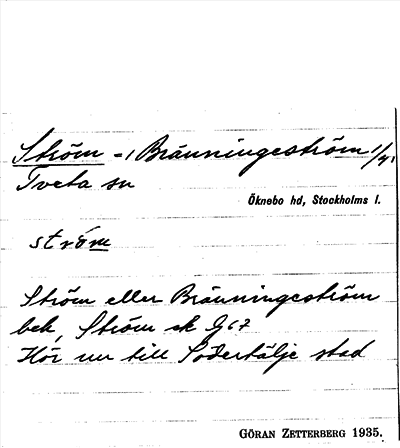 Ström =, Bränningeström 1/41
Tveta sn
Öknebo hd, Stockholms l.
ström
Ström eller Bränningeström
bek, Ström ek G67
Hör nu till Södertälje stad
GÖRAN ZETTERBERG 1935.